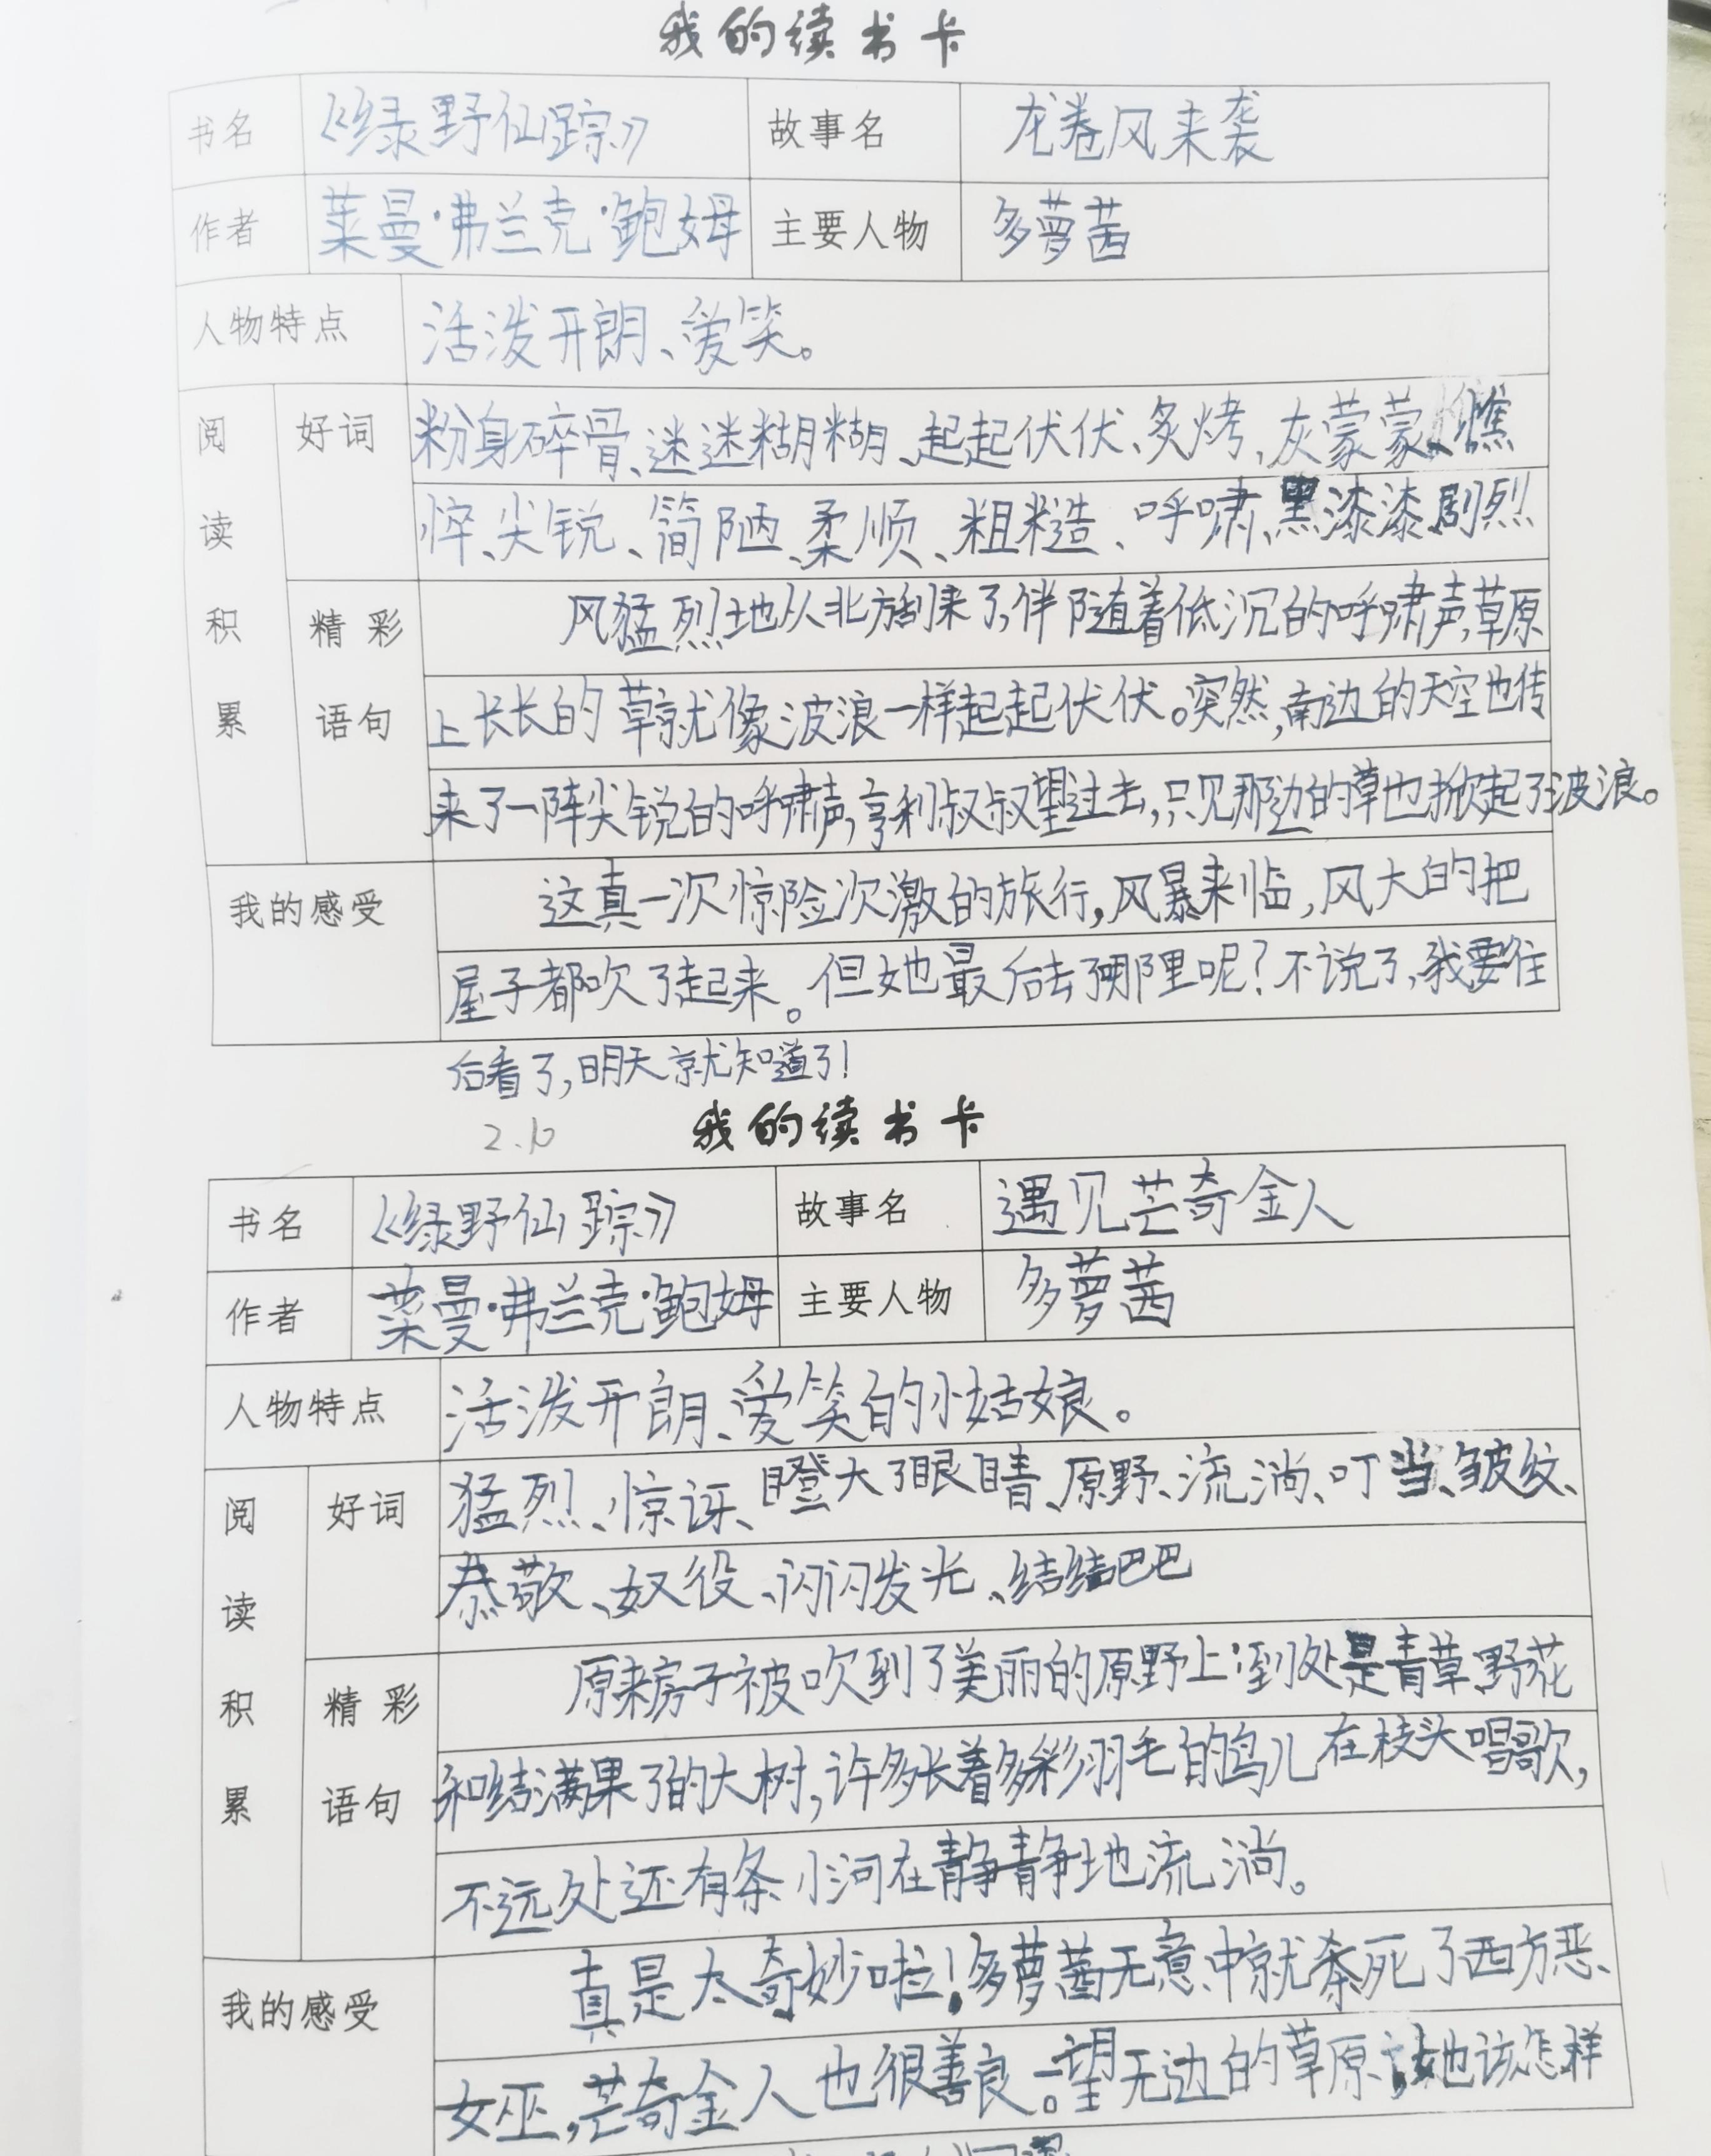 我的读书卡
书名 《绿野仙踪》 故事名 龙卷风来袭
作者 莱曼·弗兰克·鲍姆 主要人物 多萝茜
人物特点 活泼开朗、爱笑。
阅读积累 好词 粉身碎骨、迷迷糊糊、起起伏伏、炙烤、灰蒙蒙、憔
悴、尖锐、简陋、柔顺、粗糙、呼啸、黑漆漆、剧烈
精彩语句 风猛烈地从北方刮来了,伴随着低沉的呼啸声,草原
上长长的草就像波浪一样起起伏伏。突然,南边的天空也传
来了一阵尖锐的呼啸声,亨利叔叔望过去,只见那边的草也掀起了波浪。
我的感受 这真一次惊险次激的旅行,风暴来临,风大的把
屋子都吹了起来。但她最后去了哪里呢?不说了,我要往
后看了,明天就知道了!
2.10
我的读书卡
书名 《绿野仙踪》 故事名 遇见芒奇金人
作者 莱曼·弗兰克·鲍姆 主要人物 多萝茜
人物特点 活泼开朗、爱笑的小姑娘。
阅读积累 好词 猛烈、惊讶、瞪大了眼睛、原野、流淌、叮当、皱纹、
恭敬、奴役、闪闪发光、结结巴巴
精彩语句 原来房子被吹到了美丽的原野上:到处是青草、野花
和结满果了的大树,许多长着多彩羽毛的鸟儿在枝头唱歌,
不远处还有条小河在静静地流淌。
我的感受 真是太奇妙啦!多萝茜无意中就杀死了西方恶
女巫,芒奇金人也很善良。一望无边的草原,她该怎样